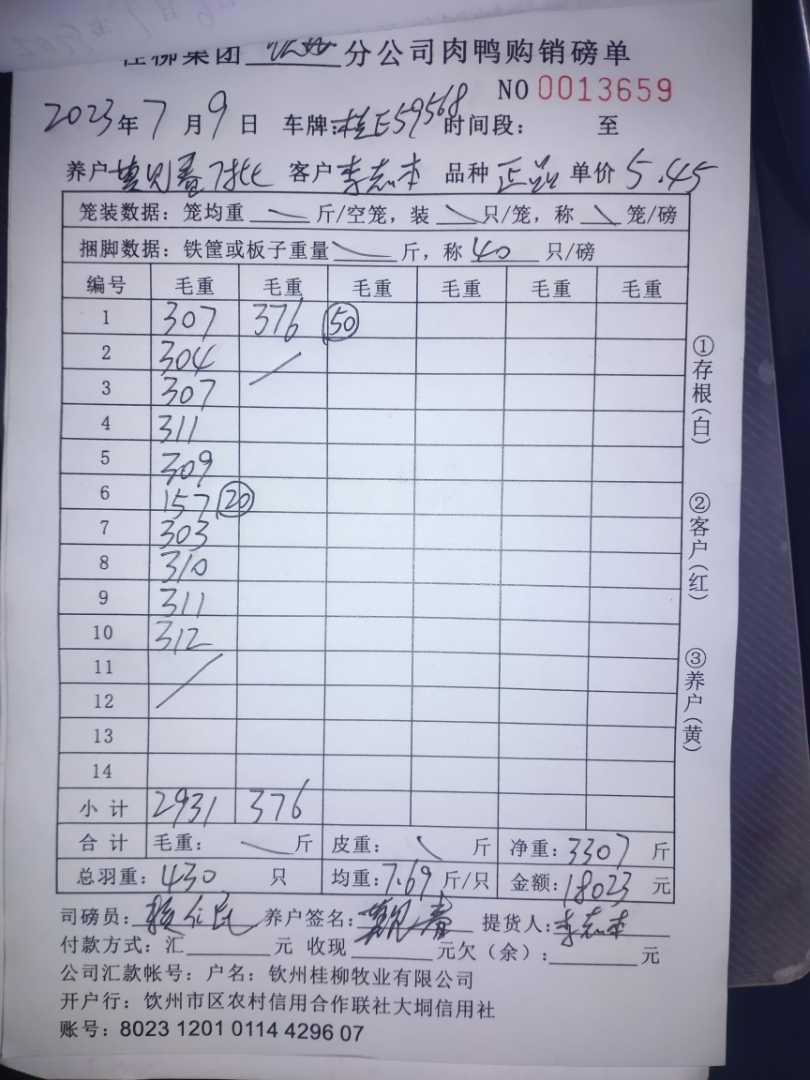 桂柳集团 分公司肉鸭购销磅单
NO 0013659
2023年7月9日 车牌:桂E59568 时间段: 至
养户 客户 李志本 品种 正品 单价 5.45
笼装数据：笼均重 斤/空笼，装 只/笼，称 笼/磅
捆脚数据：铁筐或板子重量 斤，称 40 只/磅
编号 毛重 毛重 毛重 毛重 毛重 毛重
1 307 376 50
2 304
3 307
4 311
5 309
6 157 20
7 303
8 310
9 311
10 312
11
12
13
14
小计 2931 376
合计 毛重： 斤 皮重： 斤 净重：3307 斤
总羽重：430 只 均重：7.69 斤/只 金额：18023 元
司磅员： 养户签名： 提货人：李志本
付款方式：汇 元 收现 元欠（余）： 元
公司汇款帐号：户名：钦州桂柳牧业有限公司
开户行：钦州市区农村信用合作联社大垌信用社
账号：8023 1201 0114 4296 07
①存根(白)
②客户(红)
③养户(黄)